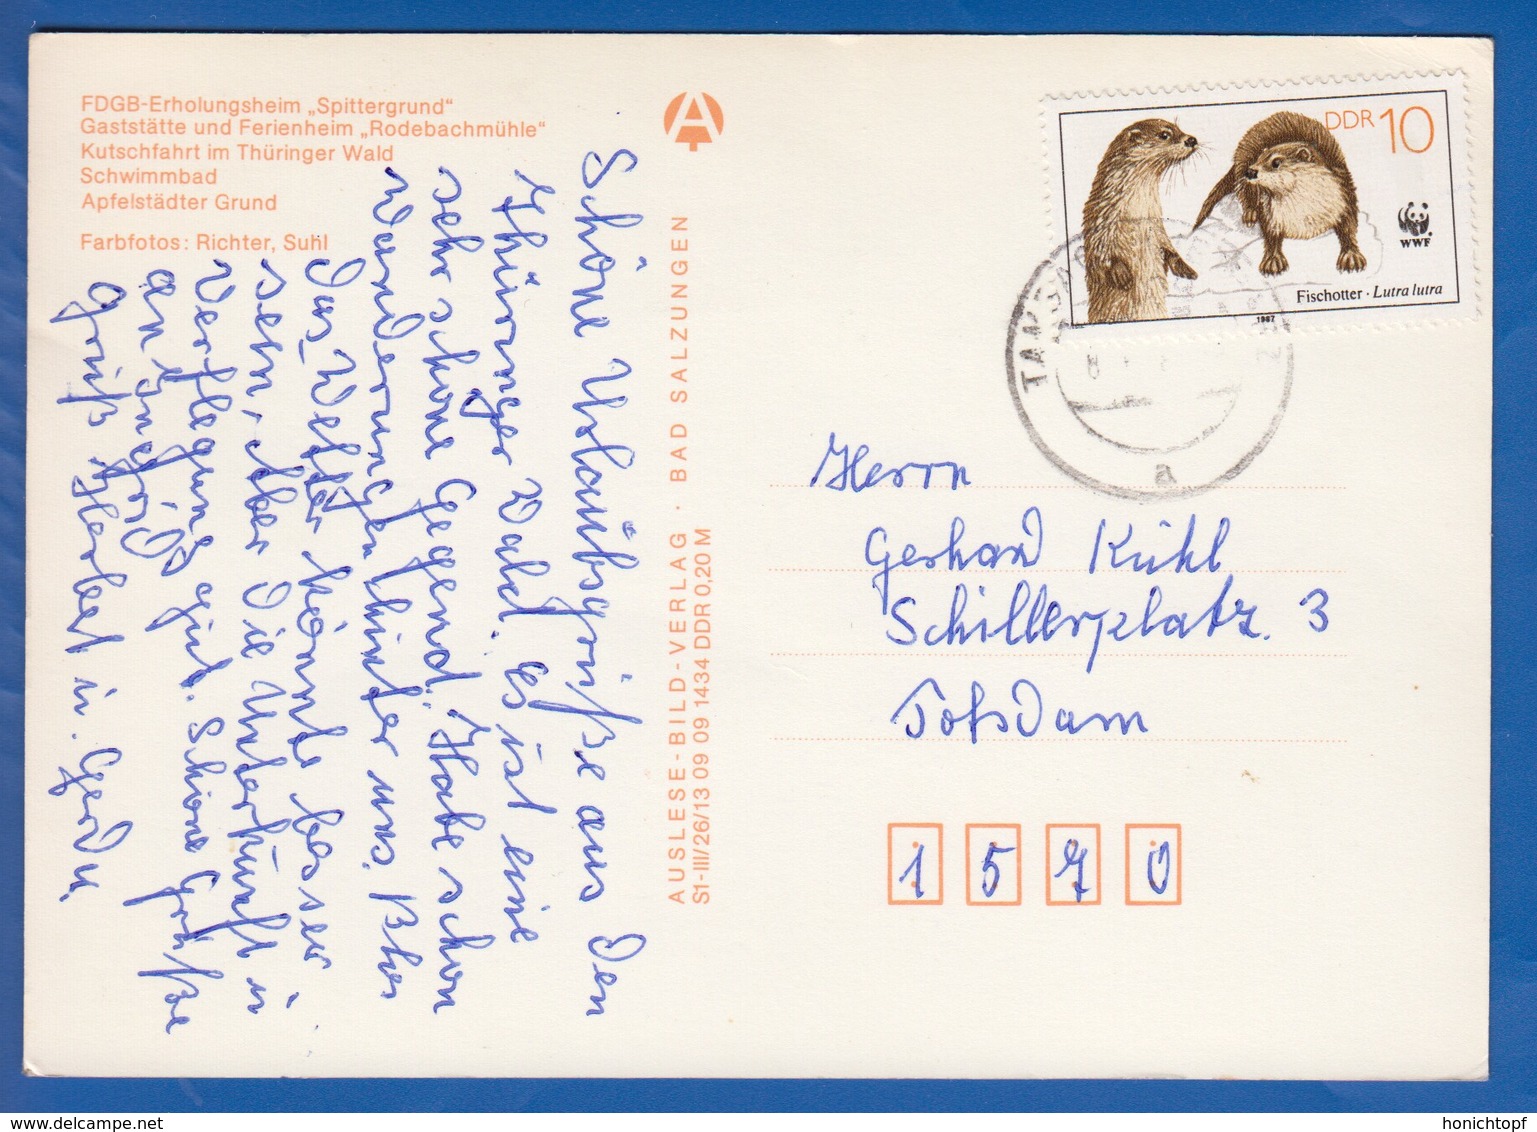 FDGB-Erholungsheim „Spittergrund“
Gaststätte und Ferienheim „Rodebachmühle“
Kutschfahrt im Thüringer Wald
Schwimmbad
Apfelstädter Grund
Farbfotos: Richter, Suhl
Schöne Urlaubsgrüße aus den
Thüringer Wald. Es ist eine
sehr schöne Gegend. Habe schon
Wanderungen hinter uns. Blos
das Wetter könnte besser
sein, aber die Unterkunft u
Verflegung gut. Schöne Grüße
an Ingrid
Gruß Herbert u. Gerda.
AUSLESE-BILD-VERLAG · BAD SALZUNGEN
S1-III/26/13 09 09 1434 DDR 0,20 M
DDR 10
WWF
Fischotter · Lutra lutra
1987
a
Herrn
Gerhard Kühl
Schillerplatz 3
Potsdam
1570
www.delcampe.net
honichtopf